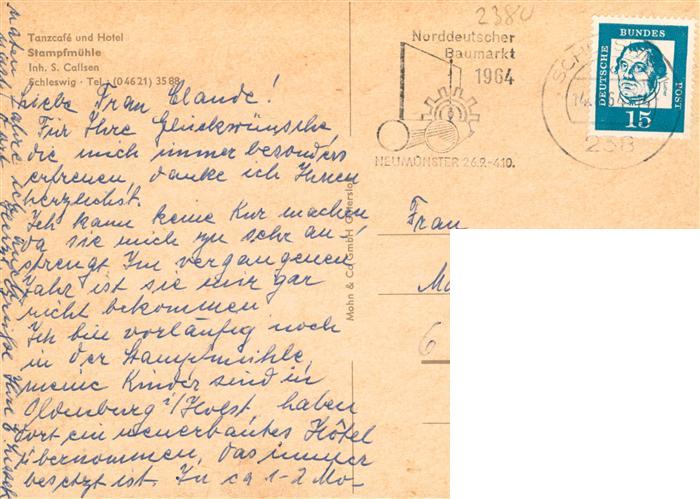 Tanzcafé und Hotel
Stampfmühle
Inh. S. Callsen
Schleswig · Tel.: (0 46 21) 35 88
2380
Norddeutscher
Baumarkt
1964
NEUMÜNSTER 26.9.-4.10.
238
DEUTSCHE BUNDES POST
15
Liebe Frau Claude!
Für Ihre Glückwünsche
die mich immer besonders
erfreuen, danke ich Ihnen
herzlichst.
Ich kann keine Kur machen
da sie mich zu sehr an-
sprengt Im vergangenen
Jahr ist sie mir gar
nicht bekommen.
Ich bin vorläufig noch
in der Stampfmühle,
meine Kinder sind in
Oldenburg i/Holst, haben
dort ein neuerbautes Hôtel
übernommen, das immer
besetzt ist. In ca 1-2 Mo-
naten fahre ich
nach dort
Grüße Ihre
Mohn & Co GmbH Gütersloh
Frau
6